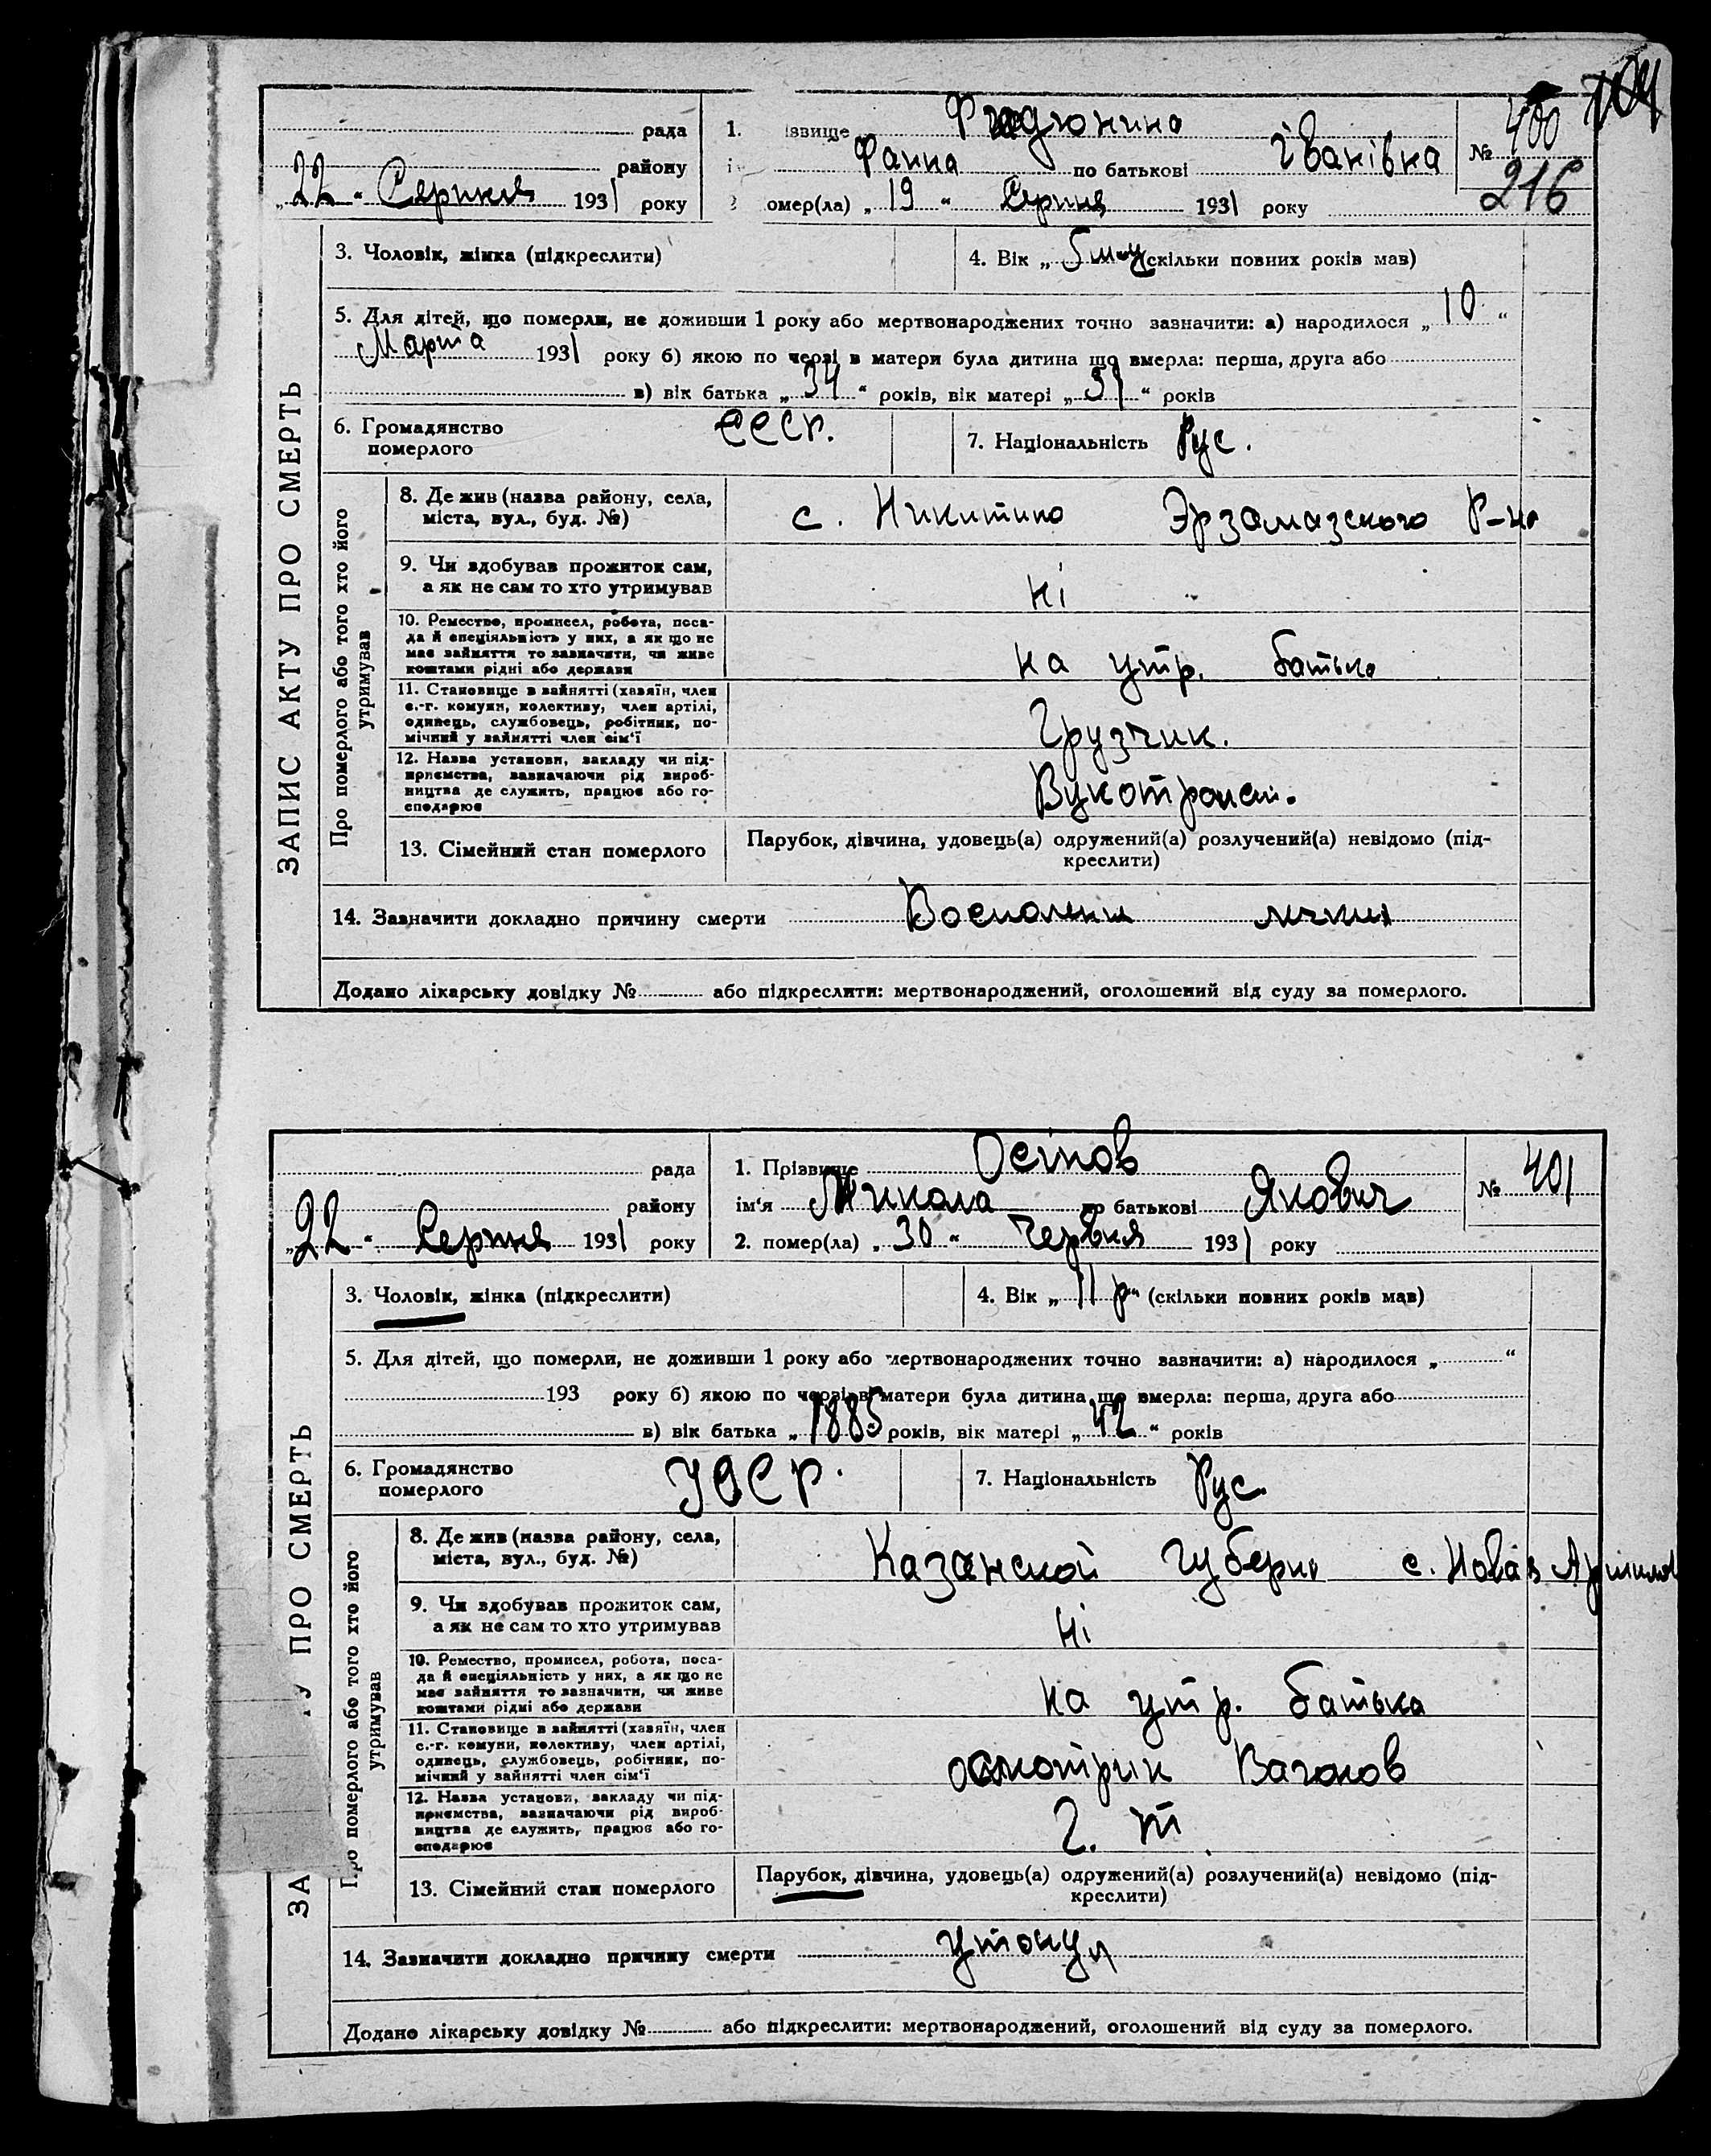 рада
району
„22“ Серпня 1931 року
1. ізвище Федюнина
Фанна по батькові Іванівна
омер(ла) „19“ Серпня 1931 року
№ 400
216
3. Чоловік, жінка (підкреслити)
4. Вік „5 м-ц (скільки повних років мав)
5. Для дітей, що померли, не доживши 1 року або мертвонароджених точно зазначити: а) народилося „10“
Марта 1931 року б) якою по черзі в матери була дитина що вмерла: перша, друга або
в) вік батька „34“ років, вік матері „31“ років
6. Громадянство померлого
СССР.
7. Національність Рус.
ЗАПИС АКТУ ПРО СМЕРТЬ
Про померлого або того хто його утримував
8. Де жив (назва району, села, міста, вул., буд. №)
с. Никитино Эрзамазского Р-на
9. Чи здобував прожиток сам, а як не сам то хто утримував
Ні
10. Ремество, промисел, робота, посада й спеціяльність у них, а як що не має зайняття то зазначити, чи живе коштами рідні або держави
на утр. батька
11. Становище в зайнятті (хазяїн, член с.-г. комуни, колективу, член артілі, одинець, службовець, робітник, помічний у зайнятті член сім'ї
Грузчик.
12. Назва установи, закладу чи підприємства, зазначаючи рід виробництва де служить, працює або господарює
Вукотранст.
13. Сімейний стан померлого
Парубок, дівчина, удовець(а) одружений(а) розлучений(а) невідомо (підкреслити)
14. Зазначити докладно причину смерти Воспаления лёгких
Додано лікарську довідку № або підкреслити: мертвонароджений, оголошений від суду за померлого.
рада
району
„22“ Серпня 1931 року
1. Прізвище Осіпов
ім'я Микола по батькові Якович
2. помер(ла) „30“ Червня 1931 року
№ 401
3. Чоловік, жінка (підкреслити)
4. Вік „11 р“ (скільки повних років мав)
5. Для дітей, що померли, не доживши 1 року або мертвонароджених точно зазначити: а) народилося „ “
193 року б) якою по черзі в матери була дитина що вмерла: перша, друга або
в) вік батька „1885 років, вік матері „42“ років
6. Громадянство померлого
УССР.
7. Національність Рус.
ЗА У ПРО СМЕРТЬ
Про померлого або того хто його утримував
8. Де жив (назва району, села, міста, вул., буд. №)
Казанской Губерни с. Нова
9. Чи здобував прожиток сам, а як не сам то хто утримував
Ні
10. Ремество, промисел, робота, посада й спеціяльність у них, а як що не має зайняття то зазначити, чи живе коштами рідні або держави
на утр. батька
11. Становище в зайнятті (хазяїн, член с.-г. комуни, колективу, член артілі, одинець, службовець, робітник, помічний у зайнятті член сім'ї
осмотрик Вагонов
12. Назва установи, закладу чи підприємства, зазначаючи рід виробництва де служить, працює або господарює
13. Сімейний стан померлого
Парубок, дівчина, удовець(а) одружений(а) розлучений(а) невідомо (підкреслити)
14. Зазначити докладно причину смерти утонул
Додано лікарську довідку № або підкреслити: мертвонароджений, оголошений від суду за померлого.